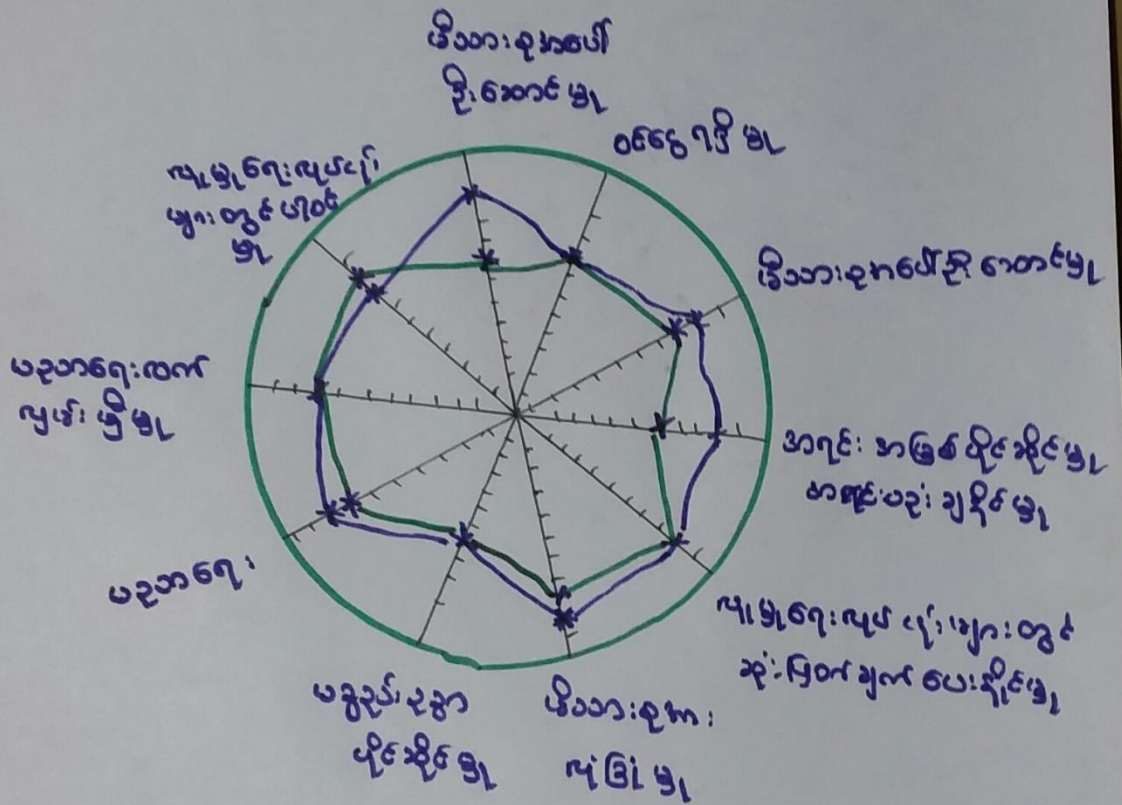 မိသားစုအပေါ်
ဦးဆောင်မှု
ဝင်ငွေရရှိမှု
မိသားစုအပေါ်ဦးဆောင်မှု
အရင်းအမြစ်ပိုင်ဆိုင်မှု
အရင်းပညံချနိုင်မှု
လူမှုရေးလုပ်ငန်းများတွင်
ဆုံးဖြတ်ချက်ပေးနိုင်မှု
မိသားစုအား
လုံခြုံမှု
ပစ္စည်းဥစ္စာ
ပိုင်ဆိုင်မှု
ပညာရေး
ပညာရေးလက်
လှမ်းမှီမှု
လူမှုရေးလုပ်ငန်း
များတွင်ပါဝင်
မှု